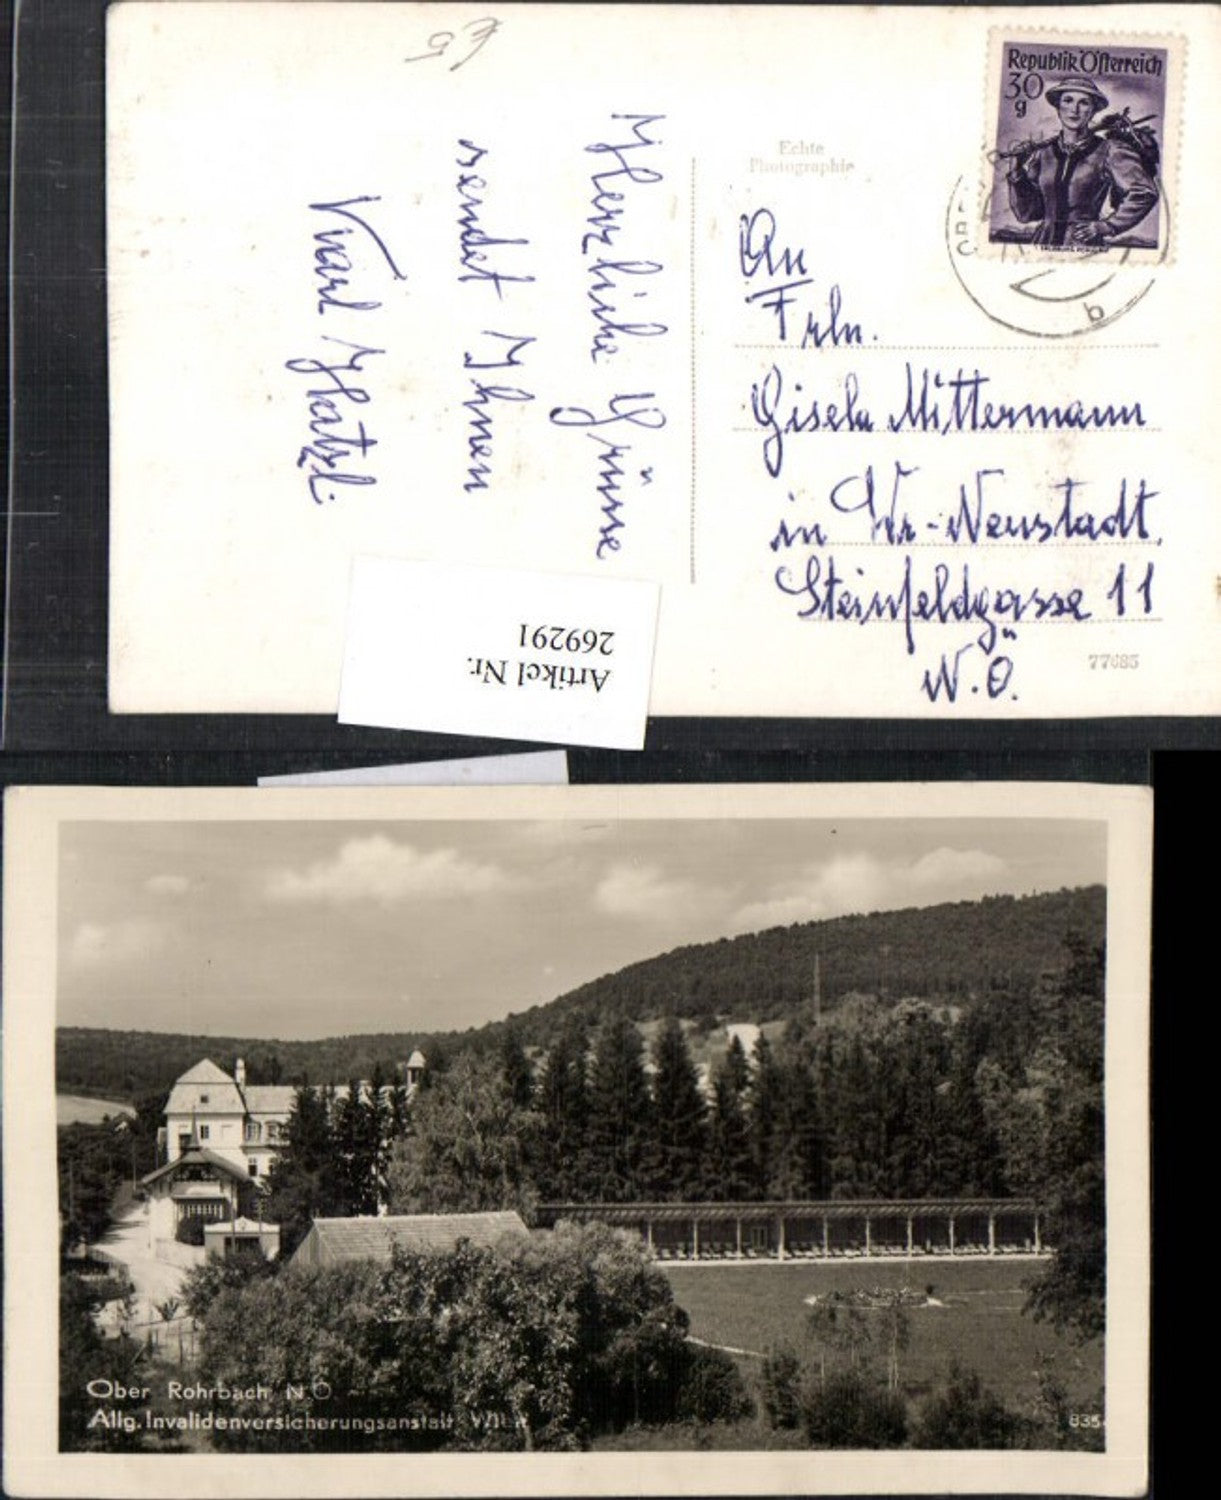 €5
Herzliche Grüsse
sendet Ihnen
Karl Hatzl.
Echte
Photographie
Republik Österreich
30
g
b
An
Frln.
Gisela Mittermann
in Wr-Neustadt.
Steinfeldgasse 11
N.Ö.
77685
Artikel Nr.
269291
Ober Rohrbach N.Ö
Allg. Invalidenversicherungsanstalt Wien
835